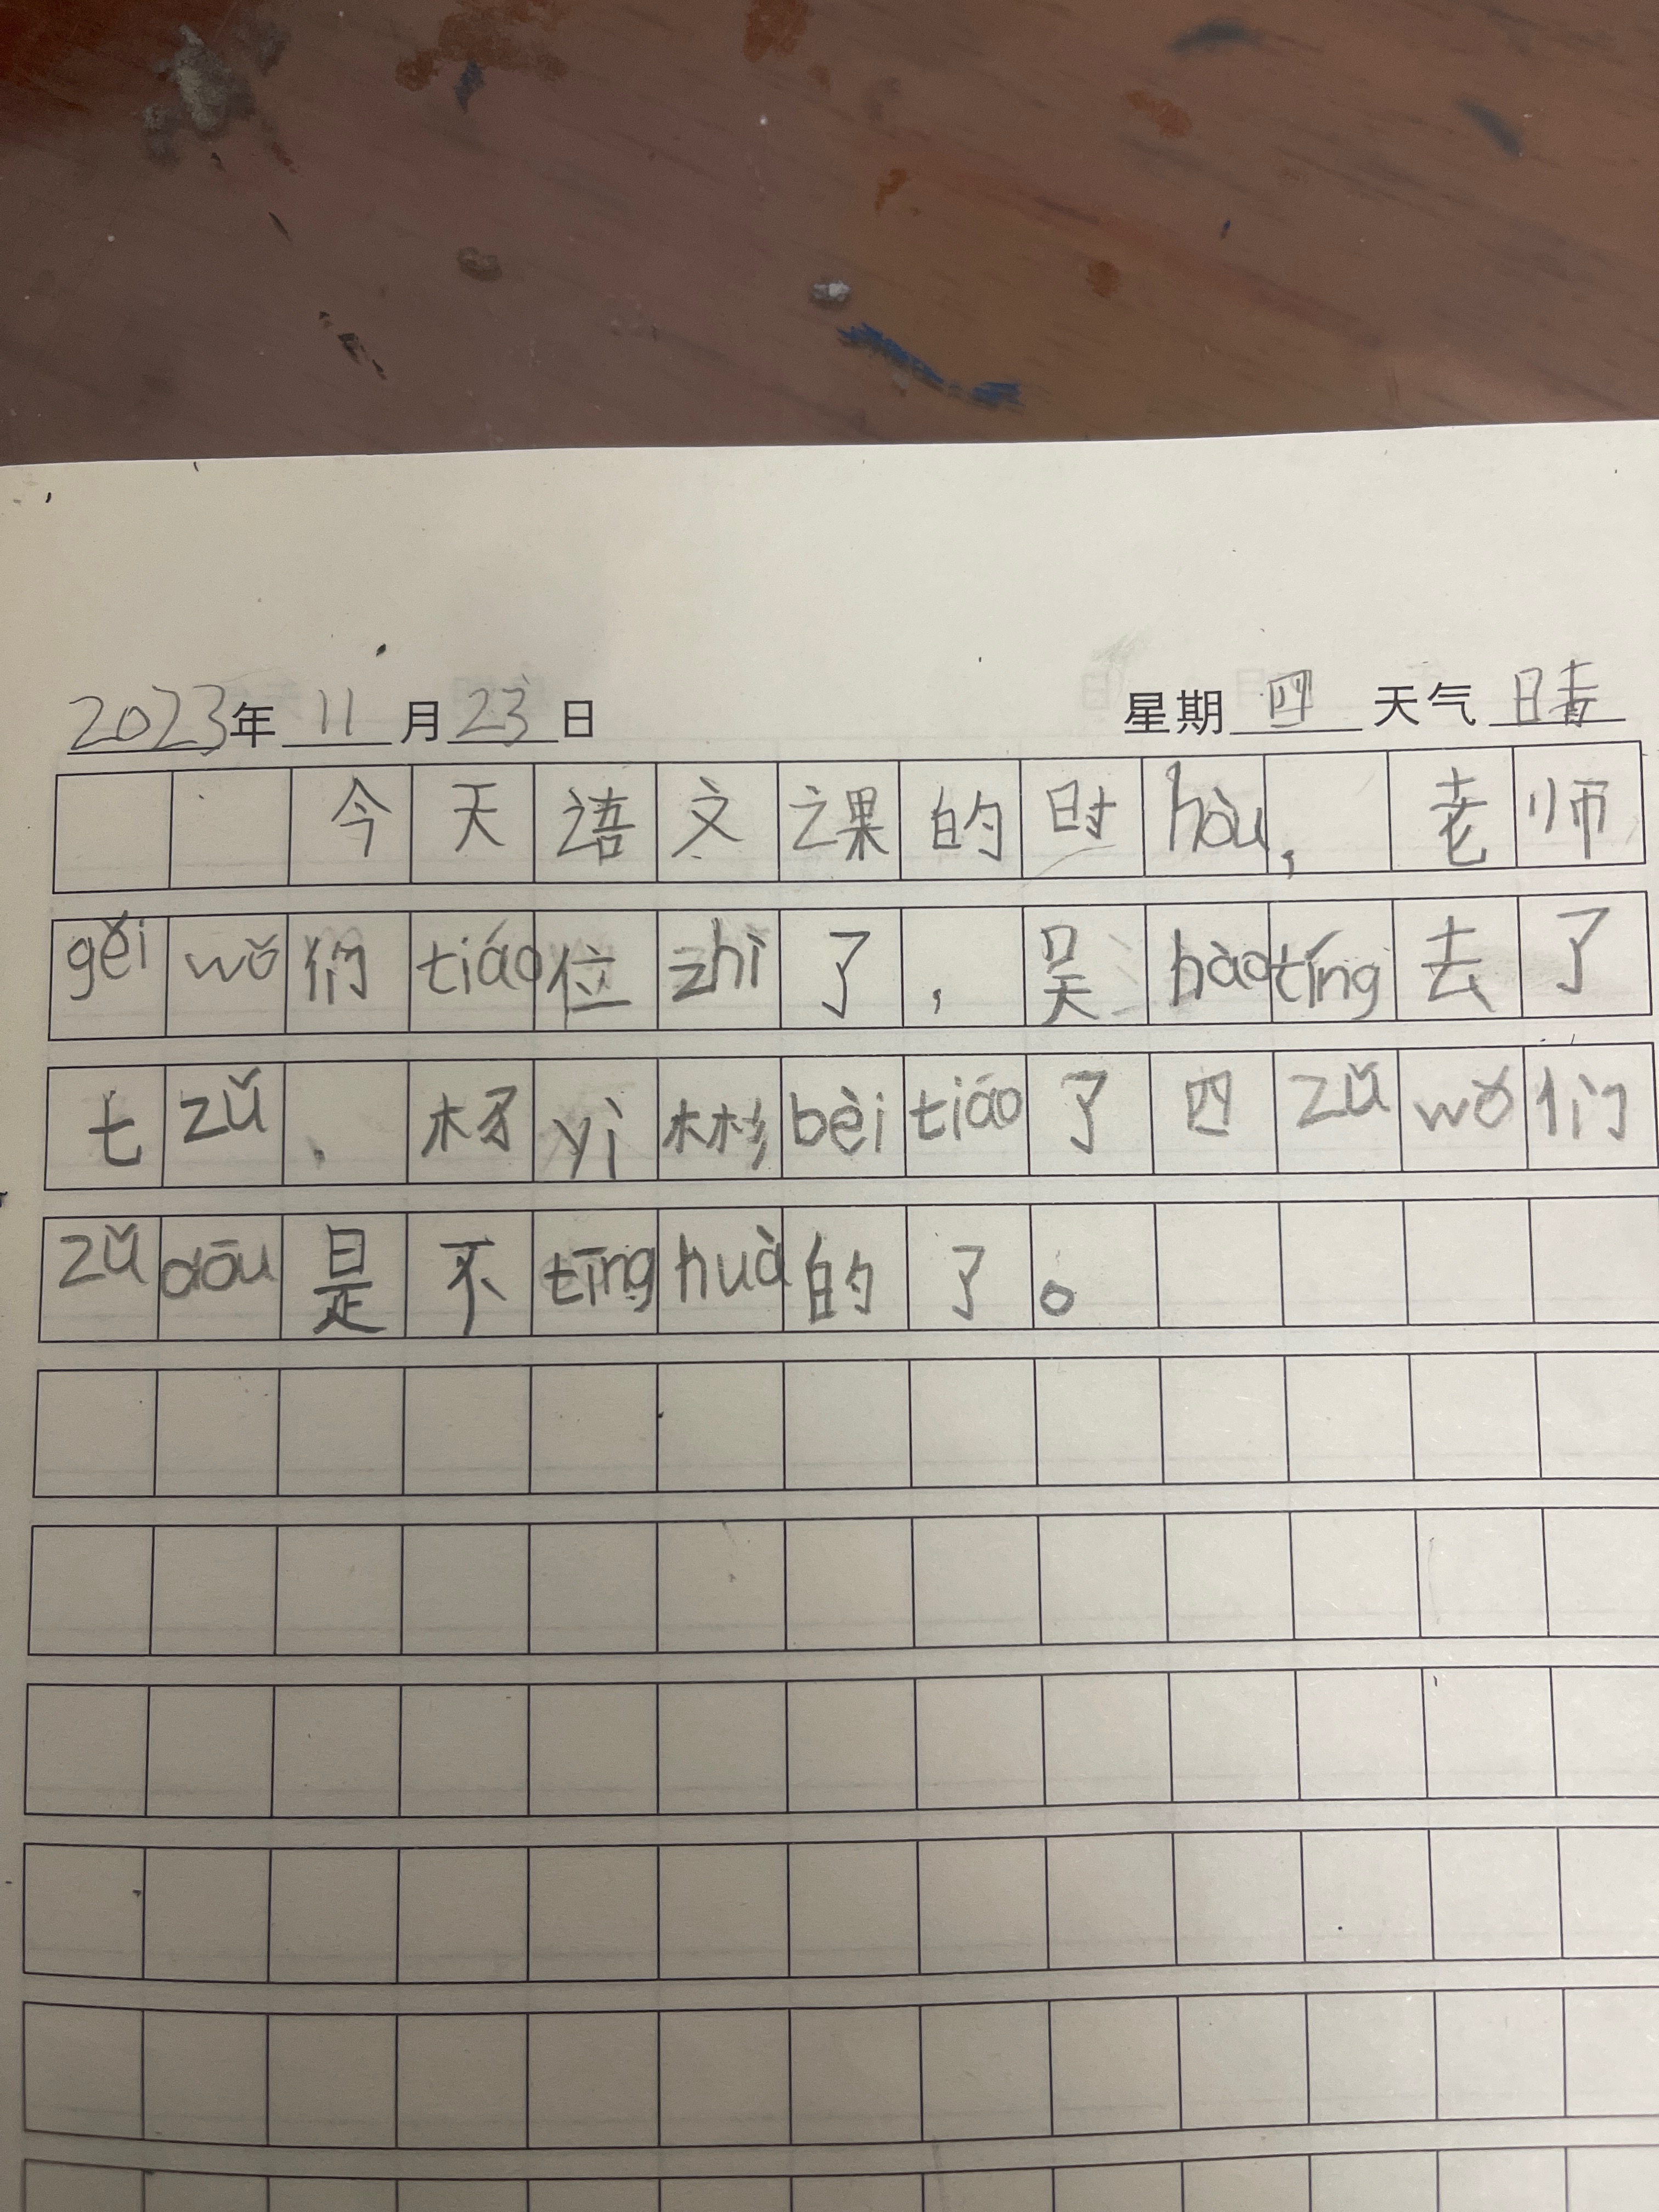 2023年 11 月 23 日 星期 四 天气 晴
今天语文课的时hòu，老师
gěi wǒ们tiáo位zhì了，吴hàotíng去了
七zǔ，杨yì彬bèitiáo了四zǔwǒ们
zǔdōu是不tīnghuà的了。